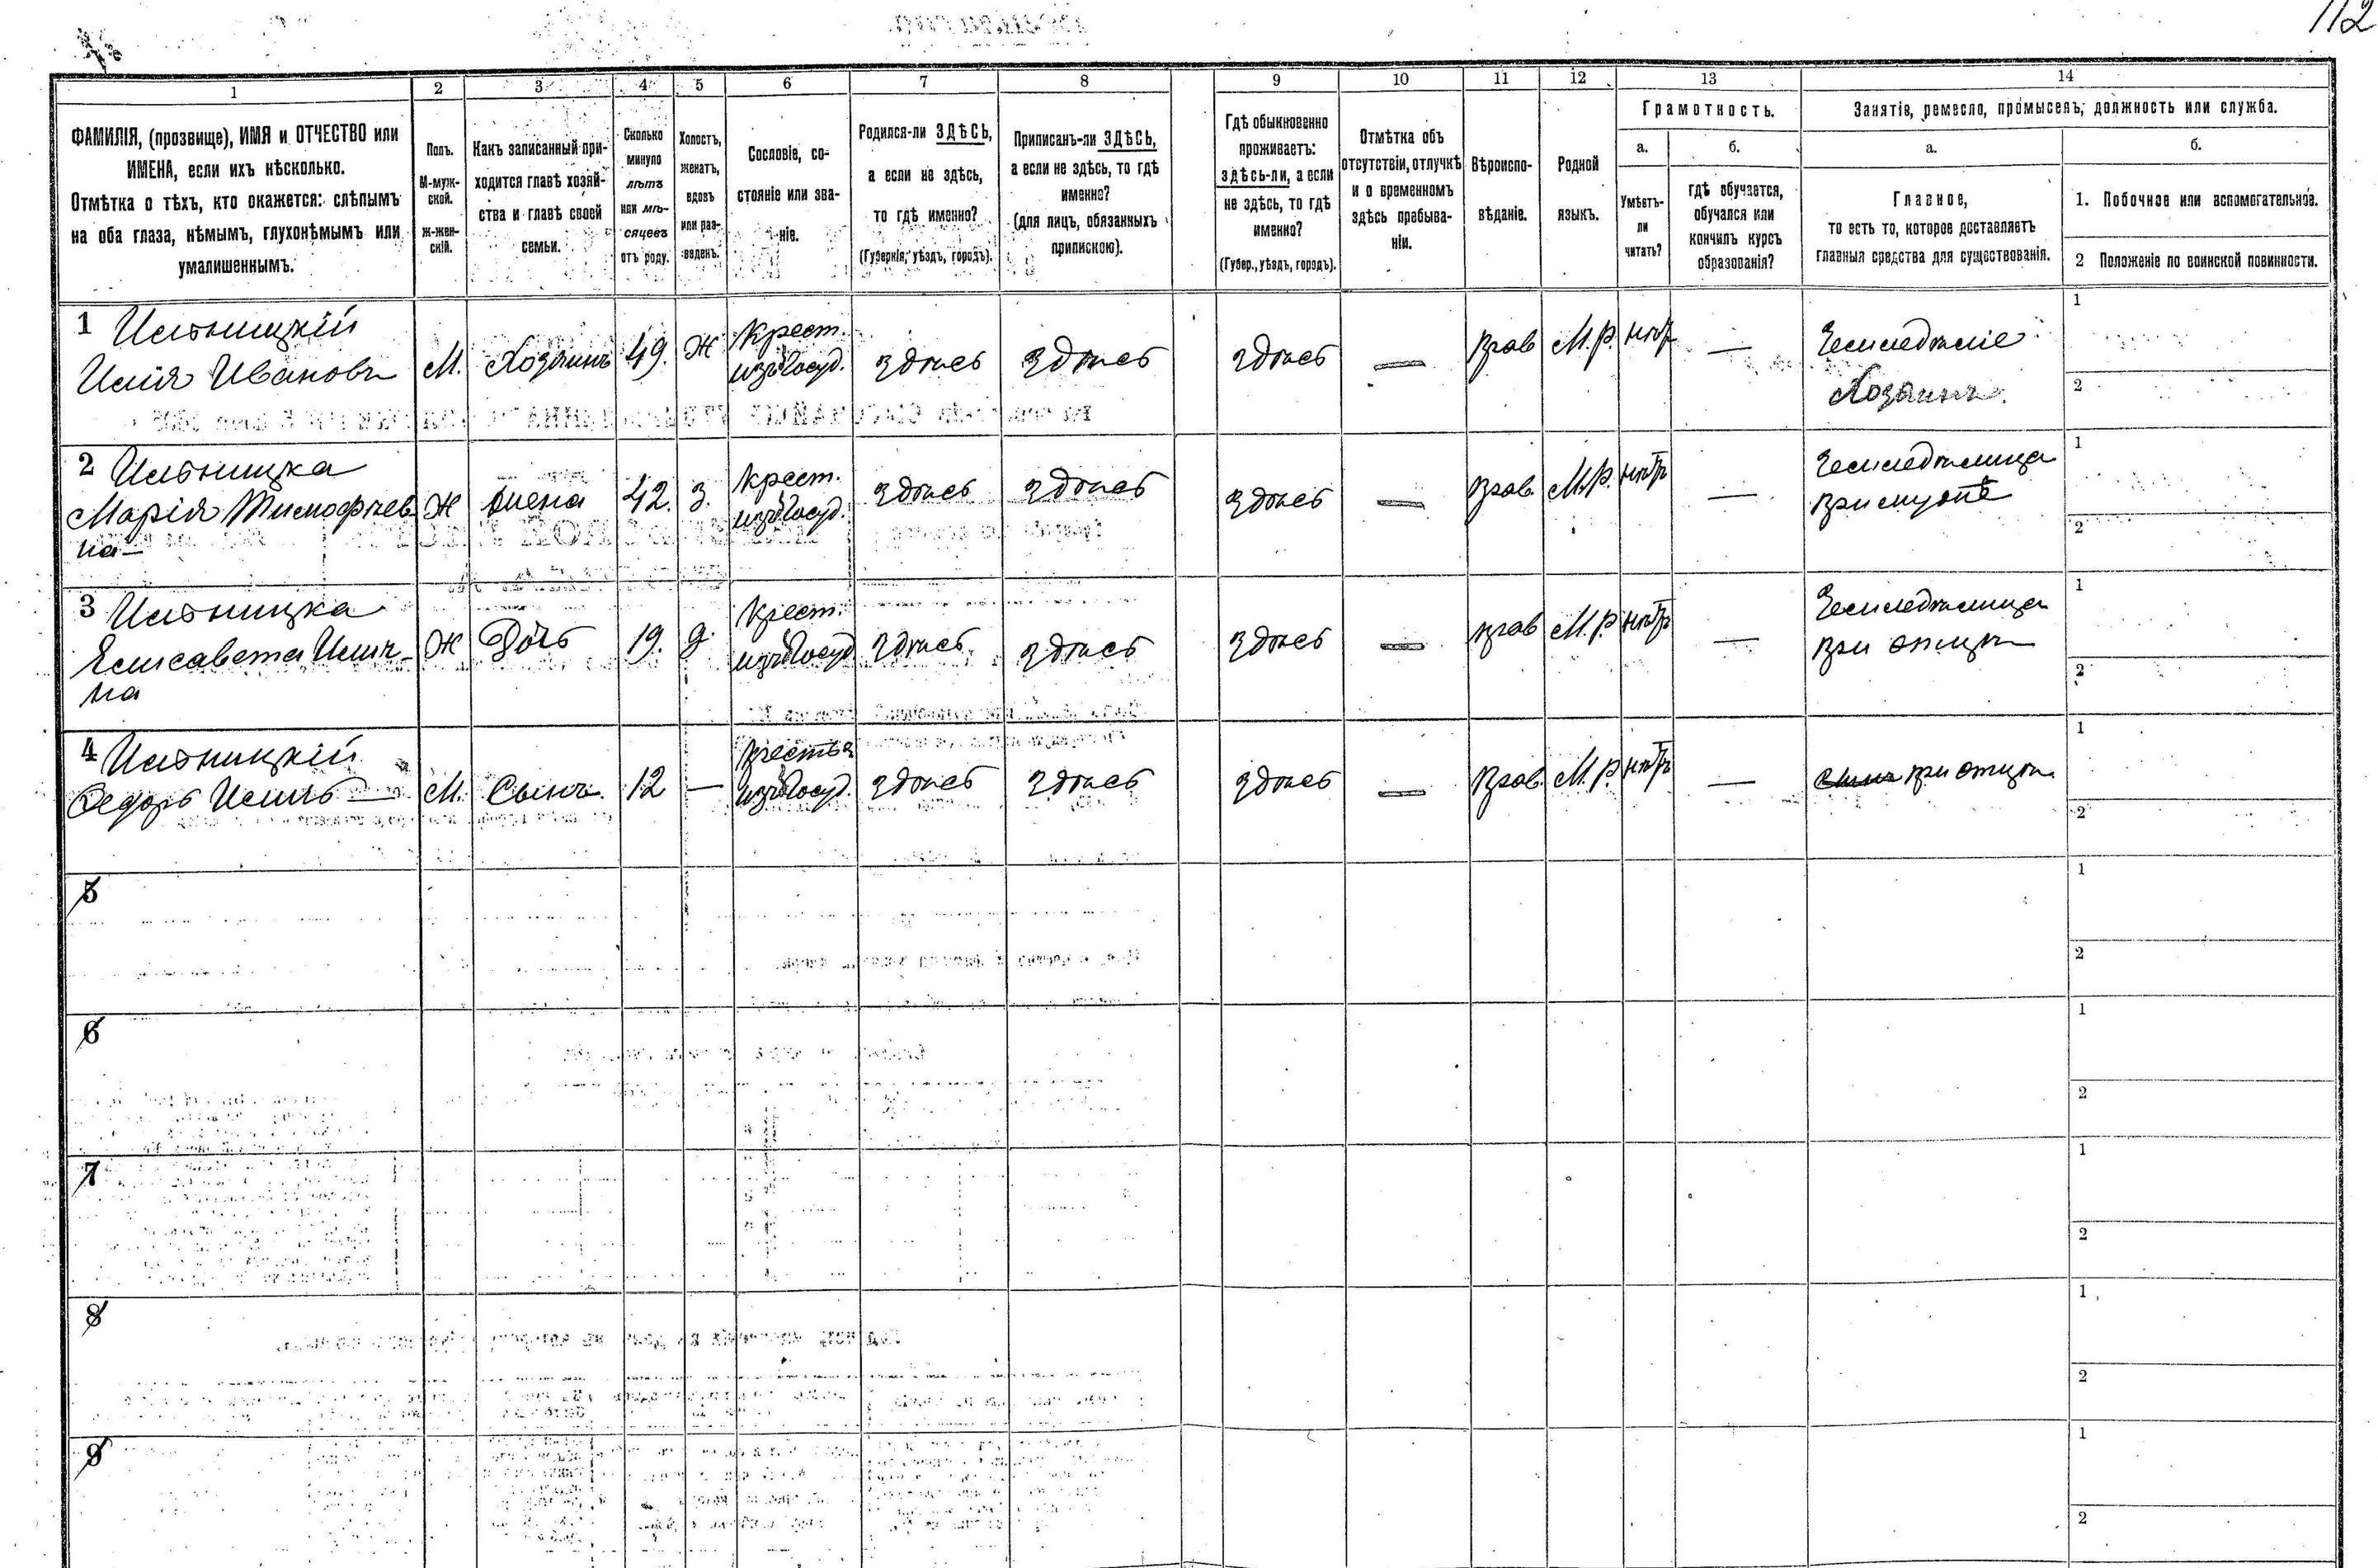 112
1
2
3
4
5
6
7
8
9
10
11
12
13
14
ФАМИЛІЯ, (прозвище), ИМЯ и ОТЧЕСТВО или
ИМЕНА, если ихъ нѣсколько.
Отмѣтка о тѣхъ, кто окажется: слѣпымъ
на оба глаза, нѣмымъ, глухонѣмымъ или
умалишеннымъ.
Полъ.
М-муж-
ской.
Ж-жен-
скій.
Какъ записанный при-
ходится главѣ хозяй-
ства и главѣ своей
семьи.
Сколько
минуло
лѣтъ
или мѣ-
сяцевъ
отъ роду.
Холостъ,
женатъ,
вдовъ
или раз-
веденъ.
Сословіе, со-
стояніе или зва-
ніе.
Родился-ли ЗДѢСЬ,
а если не здѣсь,
то гдѣ именно?
(Губернія, уѣздъ, городъ).
Приписанъ-ли ЗДѢСЬ,
а если не здѣсь, то гдѣ
именно?
(для лицъ, обязанныхъ
припискою).
Гдѣ обыкновенно
проживаетъ:
здѣсь-ли, а если
не здѣсь, то гдѣ
именно?
(Губер., уѣздъ, городъ).
Отмѣтка объ
отсутствіи, отлучкѣ
и о временномъ
здѣсь пребыва-
ніи.
Вѣроиспо-
вѣданіе.
Родной
языкъ.
Грамотность.
а.
Умѣетъ-
ли
читать?
б.
гдѣ обучается,
обучался или
кончилъ курсъ
образованія?
Занятія, ремесло, промыселъ, должность или служба.
а.
Главное,
то есть то, которое доставляетъ
главныя средства для существованія.
б.
1. Побочное или вспомогательное.
2 Положеніе по воинской повинности.
1 Ильницкій
Илія Ивановъ
М.
Хозяинъ
49.
Ж
Крест.
изъ Госуд.
здѣсь
здѣсь
здѣсь
—
Прав
М.Р.
нѣтъ
—
Земледѣліе
Хозяинъ.
1
2
2 Ильницка
Марія Тимофѣев
на —
Ж
жена
42.
З.
Крест.
изъ Госуд.
здѣсь
здѣсь
здѣсь
—
Прав.
М.Р.
нѣтъ
—
Земледѣлица
при мужѣ
1
2
3 Ильницка
Елисавета Иліи-
на
Ж
Дочь
19.
д.
Крест.
изъ Госуд
здѣсь
здѣсь
здѣсь
—
прав
М.Р.
нѣтъ
—
Земледѣлица
при отцѣ
1
2
4 Ильницкій
Ѳедоръ Иліиъ —
М.
Сынъ.
12
—
Крестья
изъ Госуд.
здѣсь
здѣсь
здѣсь
—
Прав.
М.Р.
нѣтъ
—
при отцѣ.
1
2
5
1
2
6
1
2
7
1
2
8
1
2
9
1
2